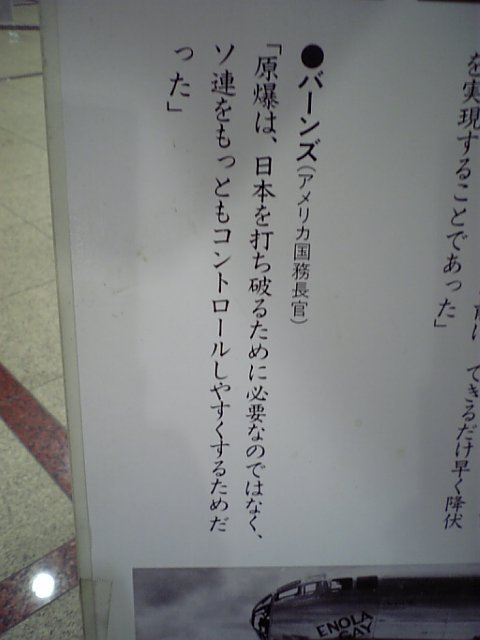 を実現することであった」
できるだけ早く降伏
●バーンズ(アメリカ国務長官)
「原爆は、日本を打ち破るために必要なのではなく、
ソ連をもっともコントロールしやすくするためだ
った」
ENOLA
GAY